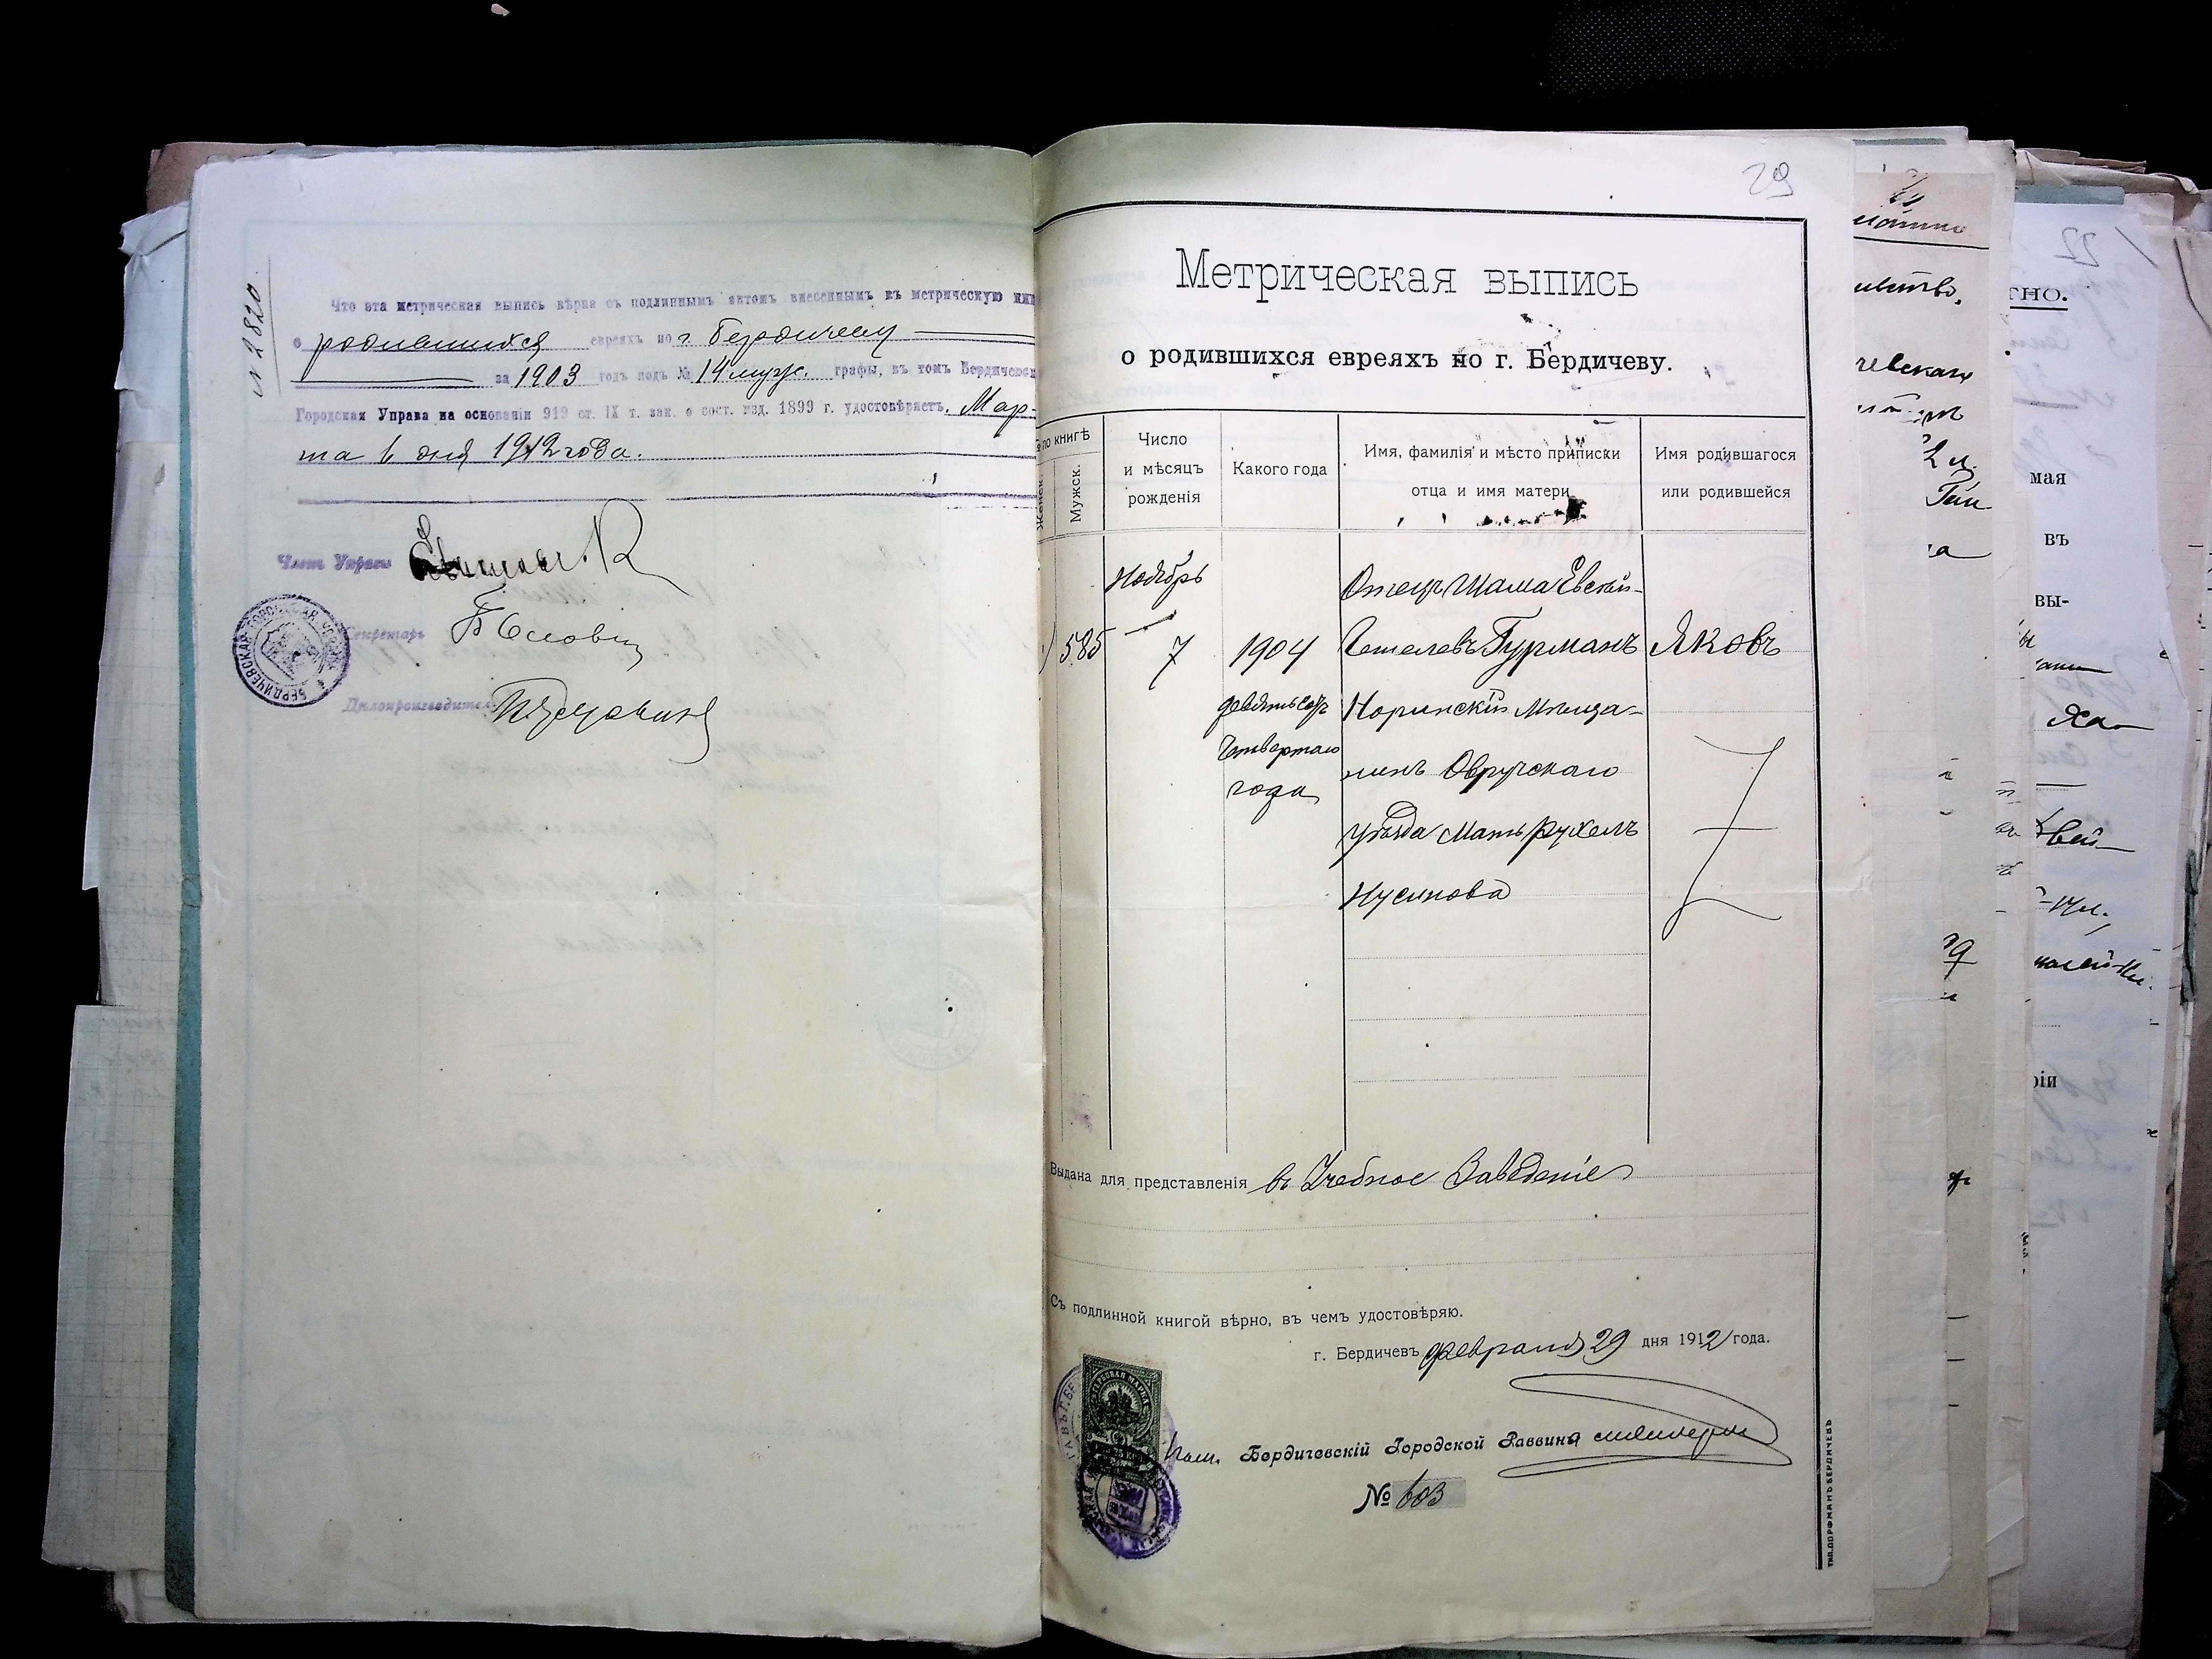 № 2820.
Что эта метрическая выпись вѣрна съ подлиннымъ актомъ внесеннымъ въ метрическую кни
о родившихся евреяхъ по г. Бердичеву
за 1903 годъ подъ № 14 мужс. графы, въ томъ Бердичевск
Городская Управа на основаніи 919 ст. IX т. зак. о сост. изд. 1899 г. удостовѣряетъ. Мар-
та 6 дня 1912 года.
Членъ Управы
Секретарь
Дѣлопроизводитель
БЕРДИЧЕВСКАЯ ГОРОДСКАЯ УПРАВА
29
Метрическая выпись
о родившихся евреяхъ по г. Бердичеву.
№ по книгѣ
Женск.
Мужск.
Число
и мѣсяцъ
рожденія
Какого года
Имя, фамилія и мѣсто приписки
отца и имя матери
Имя родившагося
или родившейся
Ноябрь
585
7
1904
девятьсотъ
четвертаго
года
Отецъ Шама Евсей-
Гешелевъ Гурманъ
Норинскій Мѣща-
нинъ Овручскаго
уѣзда Мать Рухель
Нусинова
Яковъ
Выдана для представленія въ Учебное Заведеніе
Съ подлинной книгой вѣрно, въ чемъ удостовѣряю.
г. Бердичевъ февраля 29 дня 1912 года.
ГЕРБОВАЯ МАРКА
Пом. Бердичевскій Городской Раввина
№ 603
ТИП. ДОРФМАНЪ БЕРДИЧЕВЪ
22
тно.
мая
въ
вы-
ріи